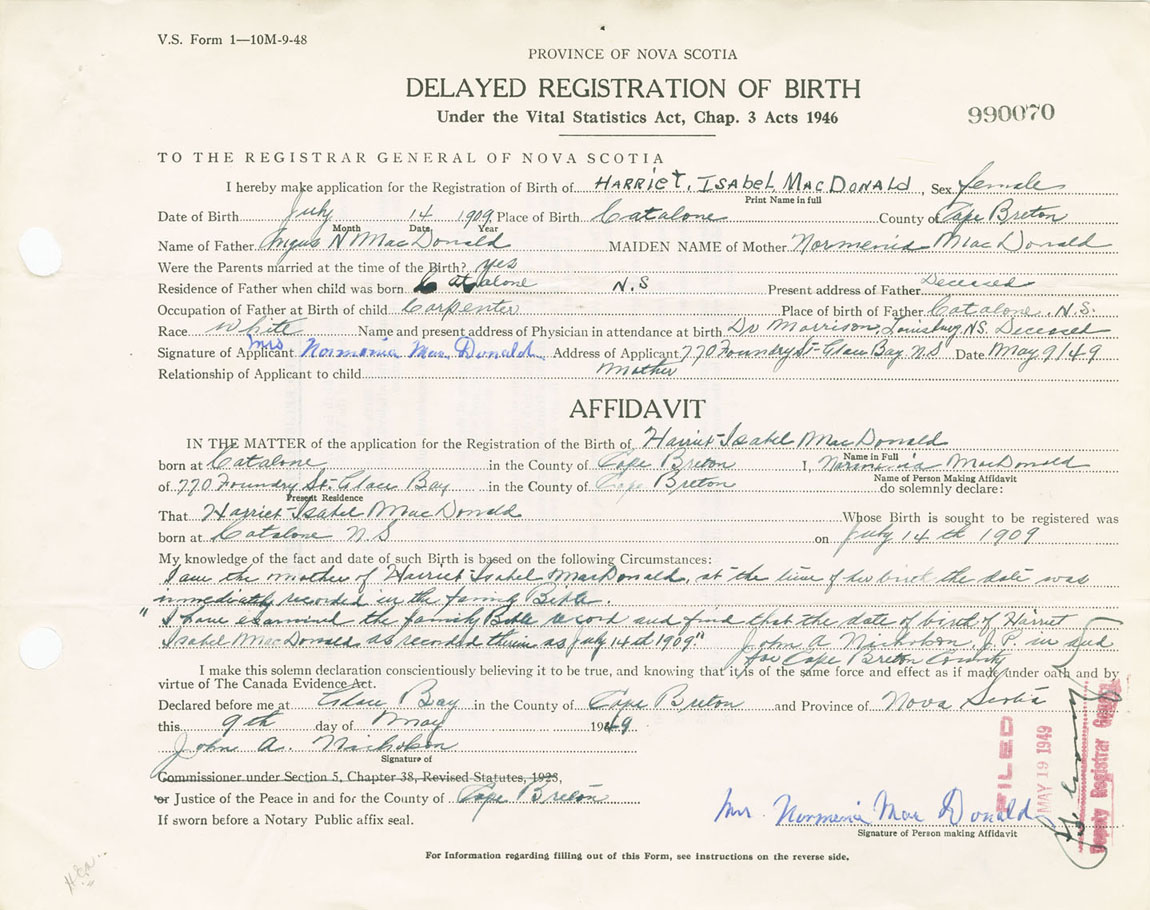 V.S. Form 1—10M-9-48
PROVINCE OF NOVA SCOTIA
DELAYED REGISTRATION OF BIRTH
Under the Vital Statistics Act, Chap. 3 Acts 1946
990070
TO THE REGISTRAR GENERAL OF NOVA SCOTIA
I hereby make application for the Registration of Birth of HARRIET, ISABEL MACDONALD, Sex female
Print Name in full
Date of Birth July 14 1909 Place of Birth Catalone County of Cape Breton
Month Date Year
Name of Father Angus N MacDonald MAIDEN NAME of Mother Normenia MacDonald
Were the Parents married at the time of the Birth? yes
Residence of Father when child was born Catalone N.S Present address of Father Deceased
Occupation of Father at Birth of child Carpenter Place of birth of Father Catalone, N.S.
Race White Name and present address of Physician in attendance at birth Dr Morrison, Louisburg N.S. Deceased
Signature of Applicant Mrs Normenia Mac Donald Address of Applicant 770 Foundry St- Glace Bay N.S Date May 9/49
Relationship of Applicant to child Mother
AFFIDAVIT
IN THE MATTER of the application for the Registration of the Birth of Harriet-Isabel MacDonald
Name in Full
born at Catalone in the County of Cape Breton I, Normenia MacDonald
Name of Person Making Affidavit
of 770 Foundry St- Glace Bay in the County of Cape Breton do solemnly declare:
Present Residence
That Harriet-Isabel MacDonald Whose Birth is sought to be registered was
born at Catalone N.S on July 14th 1909
My knowledge of the fact and date of such Birth is based on the following Circumstances:
I am the mother of Harriet-Isabel MacDonald, at the time of her birth the date was
immediately recorded in the family Bible.
"I have examined the family Bible record and find that the date of birth of Harriet
Isabel MacDonald as recorded therein as July 14th 1909" John A Nicholson, J.P. in and
for Cape Breton County
I make this solemn declaration conscientiously believing it to be true, and knowing that it is of the same force and effect as if made under oath and by
virtue of The Canada Evidence Act.
Declared before me at Glace Bay in the County of Cape Breton and Province of Nova Scotia
this 9th day of May 1949
John A. Nicholson
Signature of
Commissioner under Section 5, Chapter 38, Revised Statutes, 1923,
or Justice of the Peace in and for the County of Cape Breton
If sworn before a Notary Public affix seal.
Mrs. Normenia Mac Donald
Signature of Person making Affidavit
FILED
MAY 19 1949
Deputy Registrar General
For Information regarding filling out of this Form, see instructions on the reverse side.